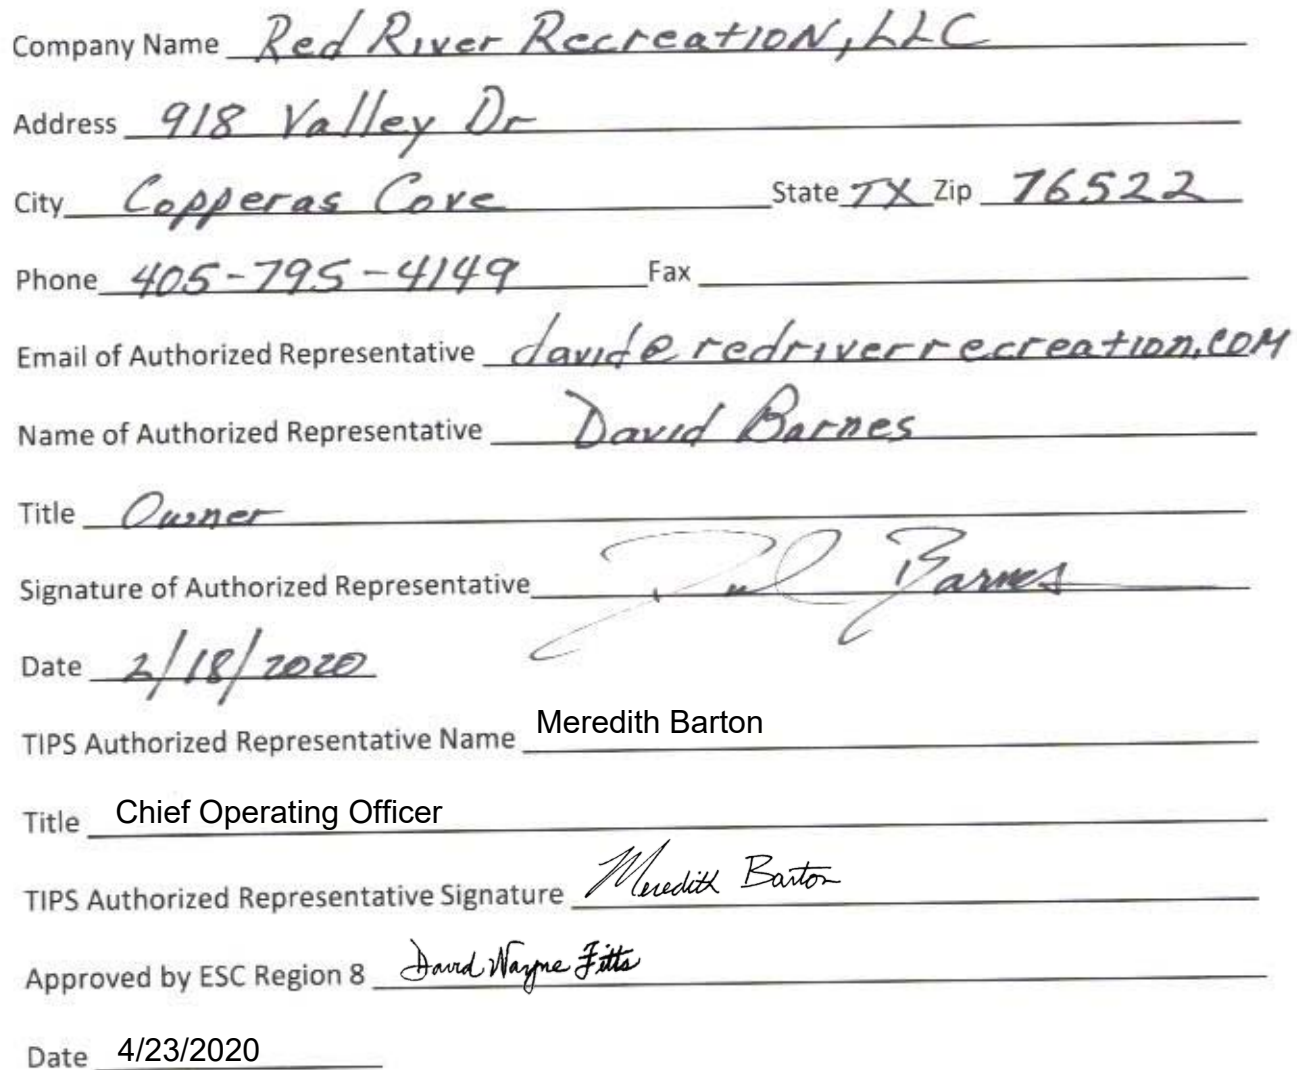 Company Name Red River Recreation, LLC
Address 918 Valley Dr
City Copperas Cove State TX Zip 76522
Phone 405-795-4149 Fax
Email of Authorized Representative david@redriverrecreation.com
Name of Authorized Representative David Barnes
Title Owner
Signature of Authorized Representative David Barnes
Date 2/18/2020
TIPS Authorized Representative Name Meredith Barton
Title Chief Operating Officer
TIPS Authorized Representative Signature Meredith Barton
Approved by ESC Region 8 David Wayne Fitts
Date 4/23/2020